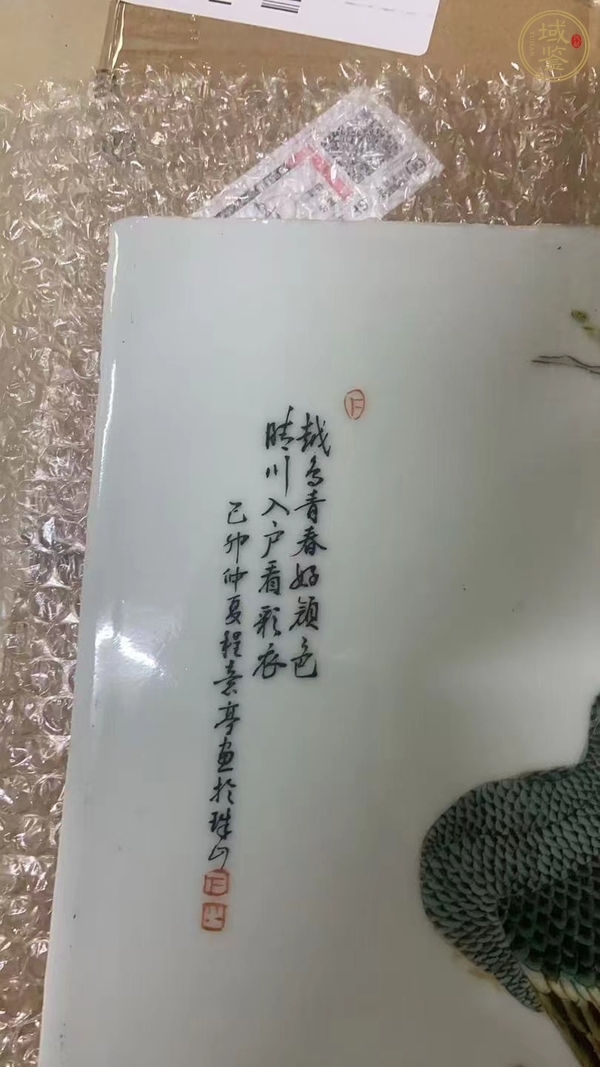 越鸟青春好颜色
晴川入户看彩衣
己卯仲夏程意亭画於珠山
域鉴